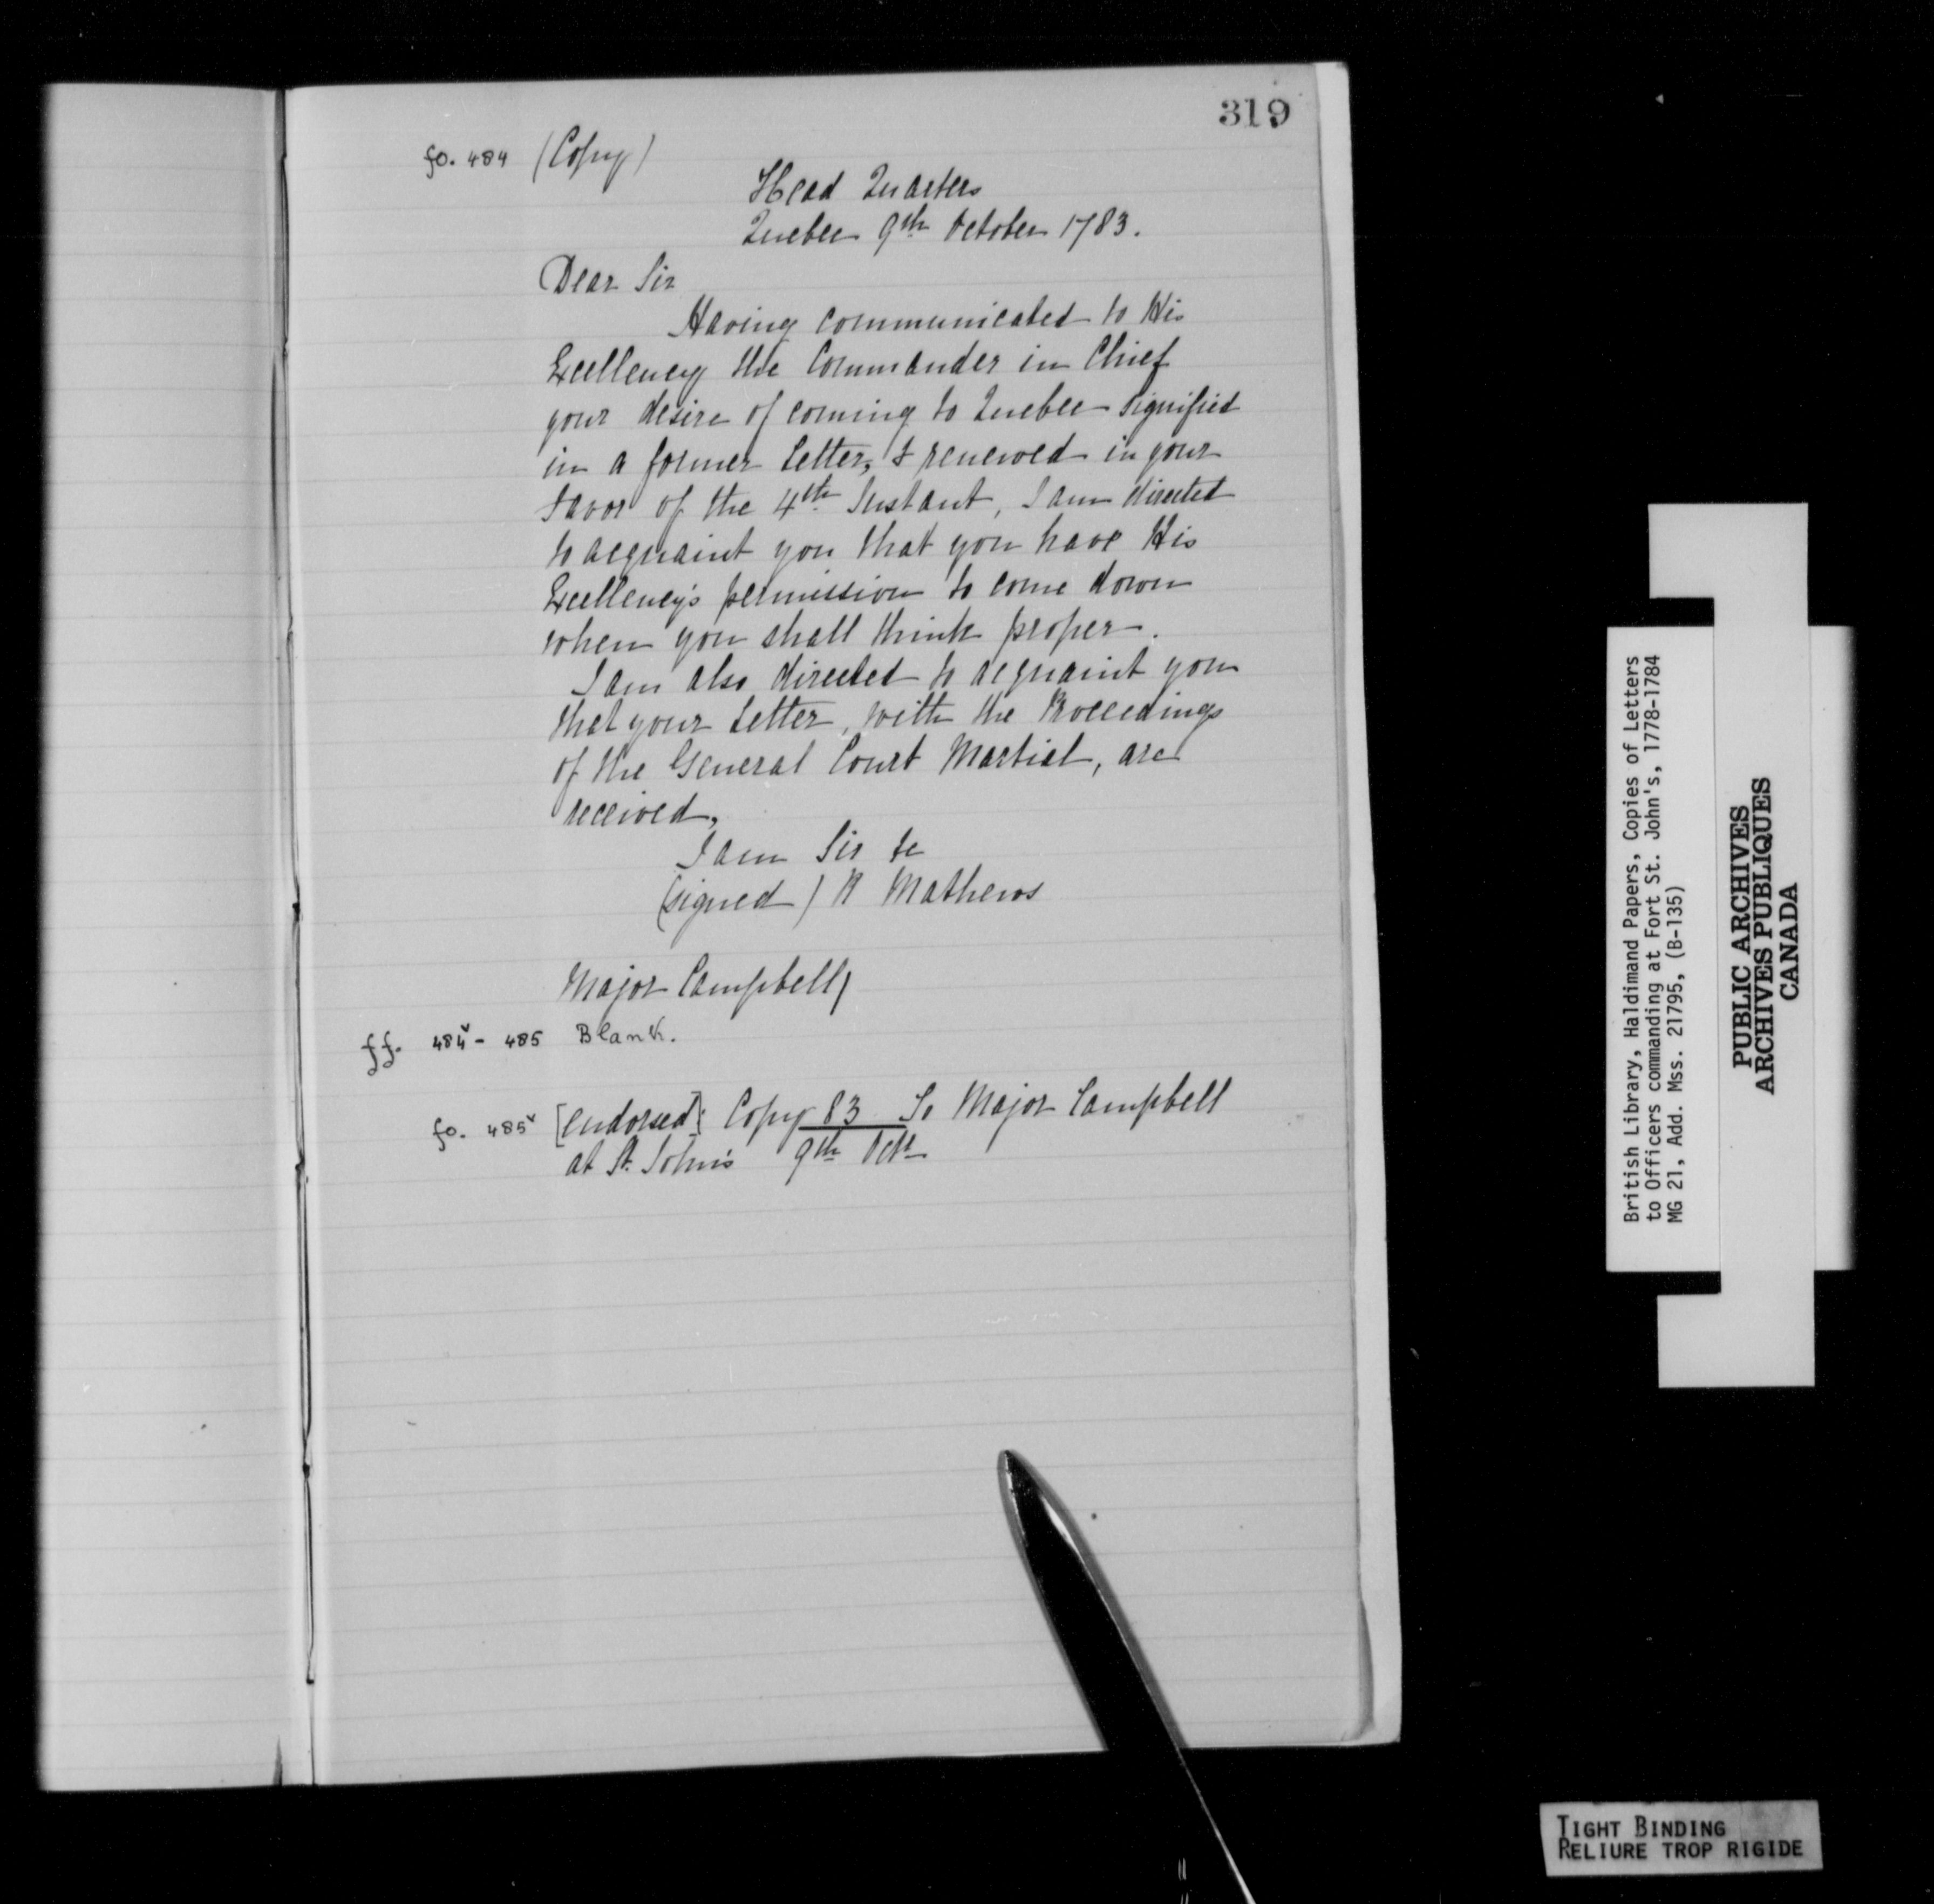 319
fo. 484 (Copy)
Head Quarters
Quebec 9th October 1783.
Dear Sir
Having communicated to His
Excellency the Commander in Chief
your desire of coming to Quebec signified
in a former Letter, & renewed in your
favor of the 4th Instant, I am directed
to acquaint you that you have His
Excellency's permission to come down
when you shall think proper.
I am also directed to acquaint you
that your Letter, with the Proceedings
of the General Court Martial, are
received,
I am Sir &c
(signed) R Mathews
Major Campbell
ff. 484v - 485 Blank.
fo. 485v [endorsed]: Copy 83 To Major Campbell
at St. John's 9th Octr
British Library, Haldimand Papers, Copies of Letters
to Officers commanding at Fort St. John's, 1778-1784
MG 21, Add. Mss. 21795, (B-135)
PUBLIC ARCHIVES
ARCHIVES PUBLIQUES
CANADA
TIGHT BINDING
RELIURE TROP RIGIDE